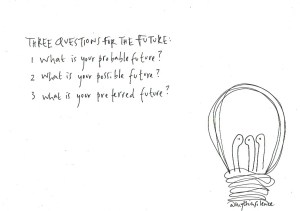 THREE QUESTIONS FOR THE FUTURE:
1 what is your probable future?
2 what is your possible future?
3 what is your preferred future?